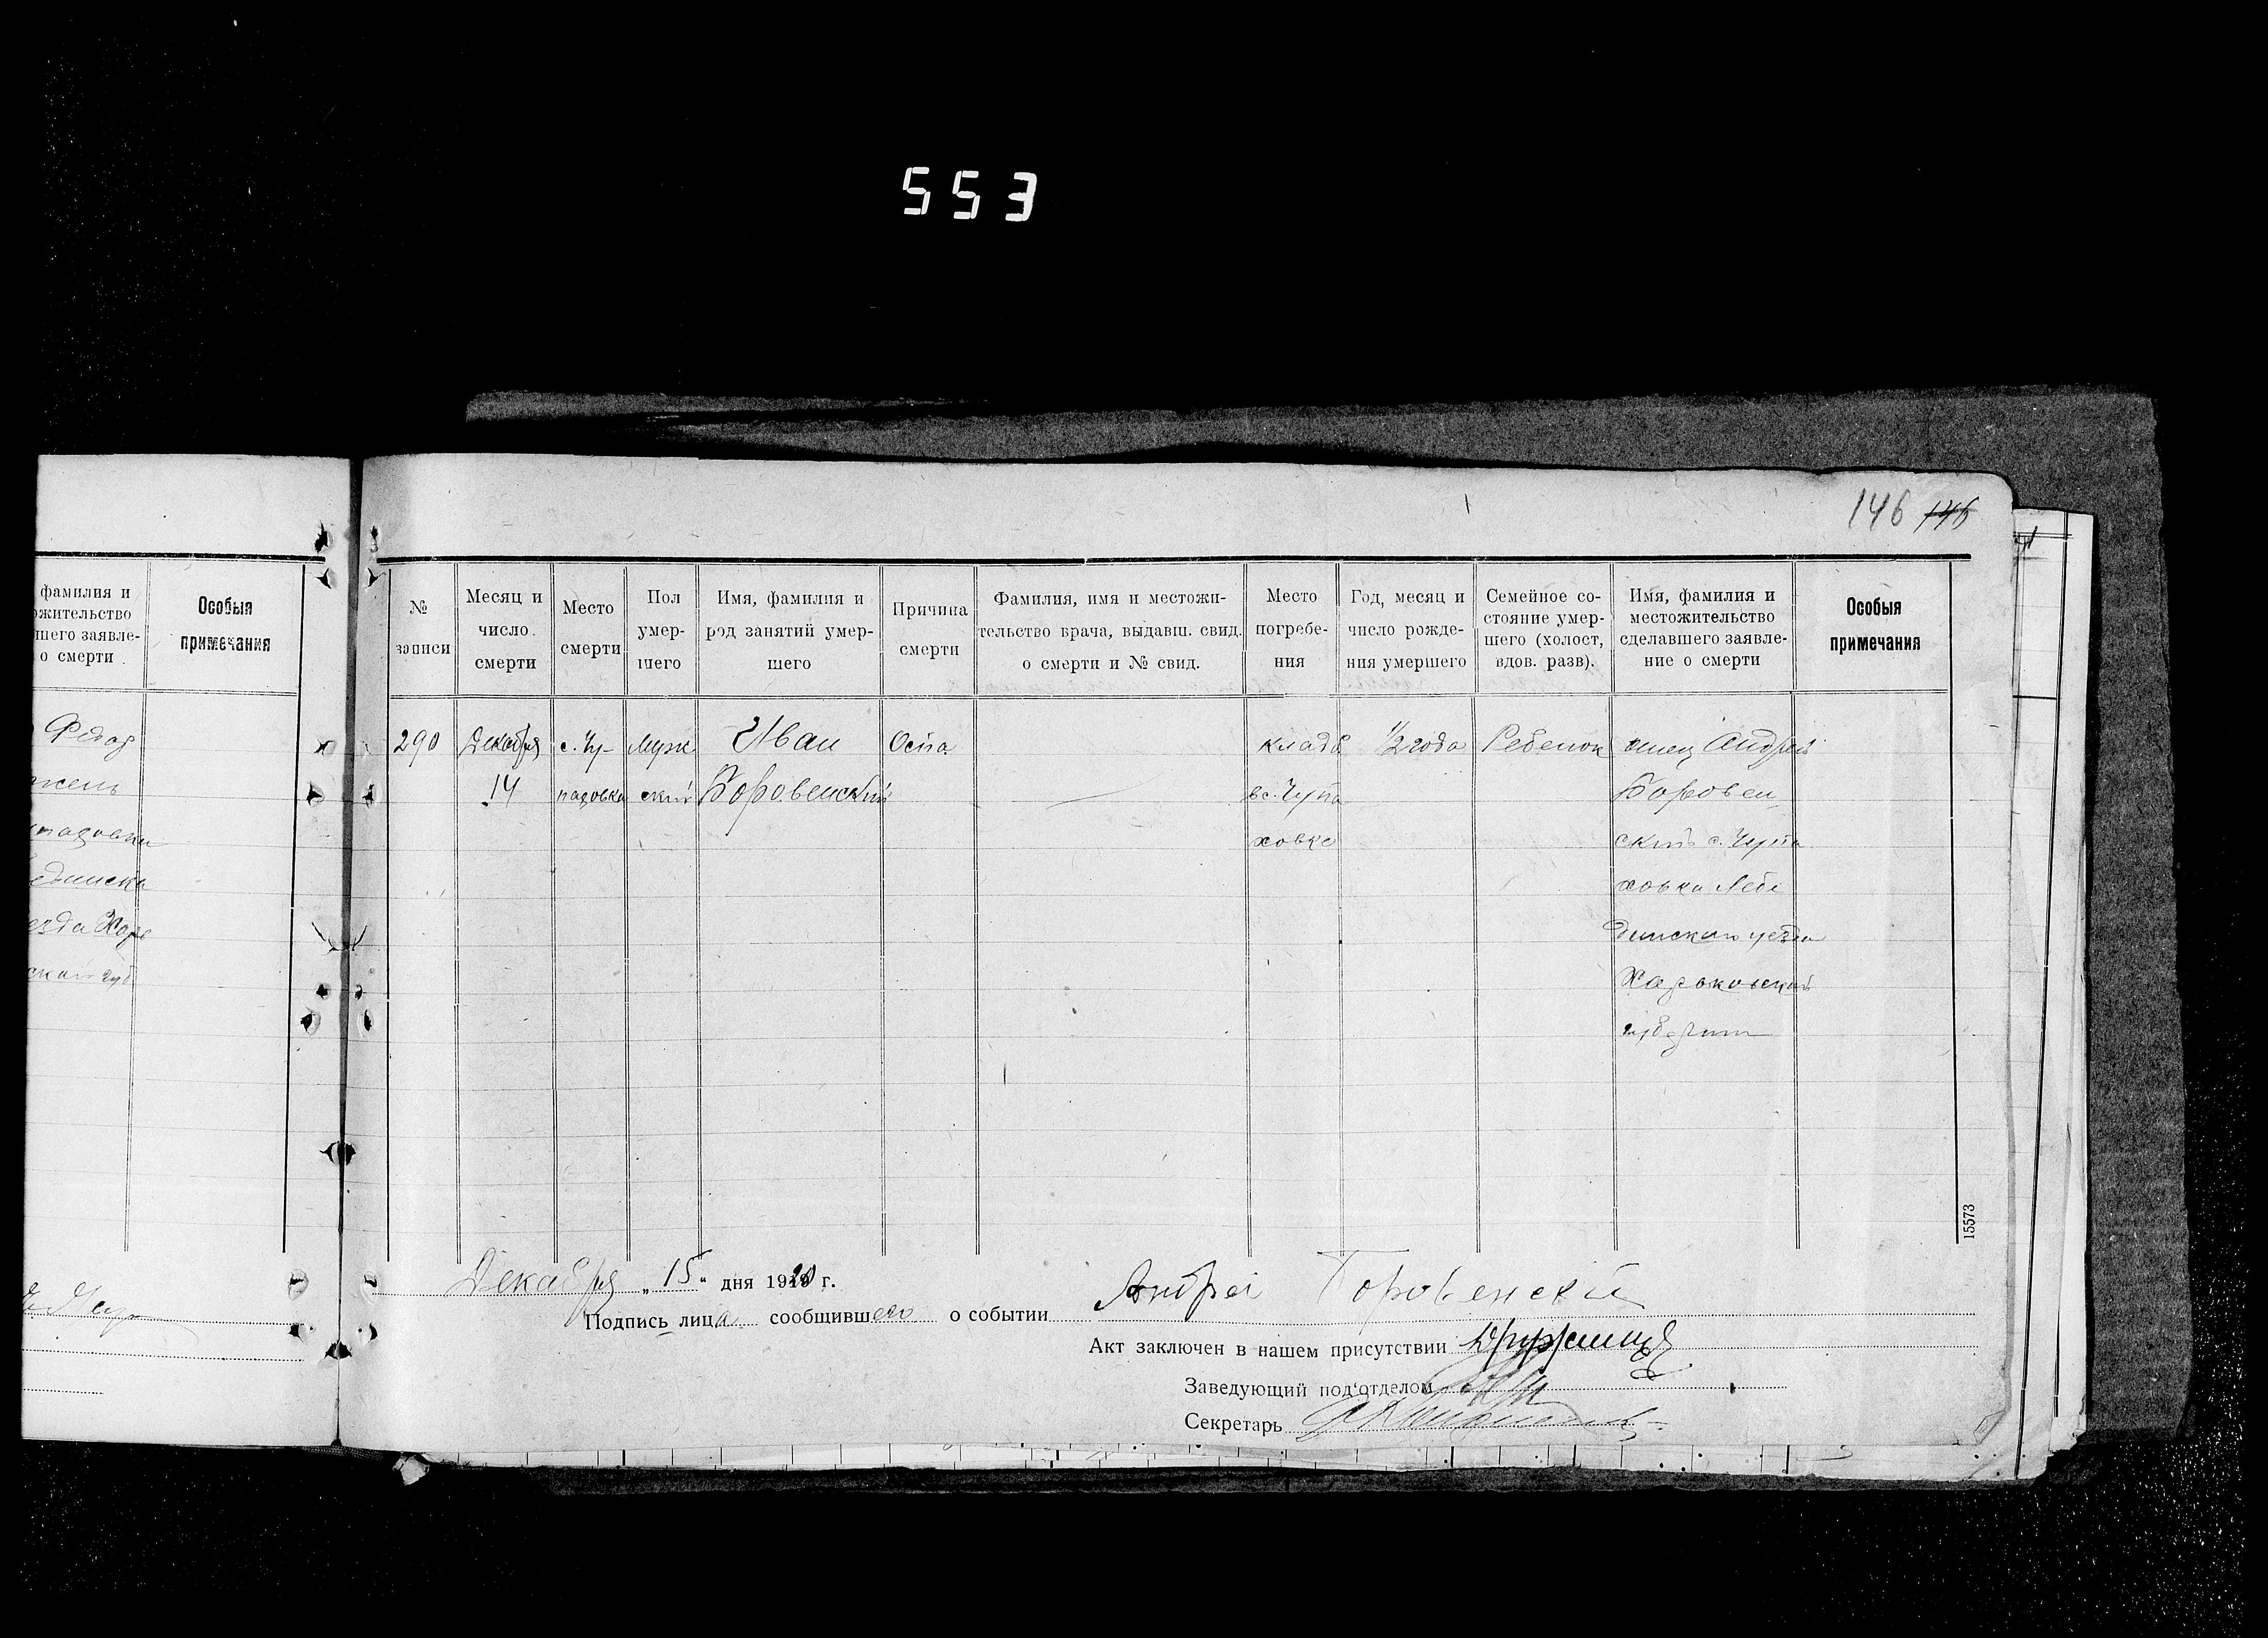 553
146 146
фамилия и
ожительство
шего заявле-
о смерти
Особыя
примечания
Федор
единска
езда Харь
ской губ
№
записи
Месяц и
число
смерти
Место
смерти
Пол
умер-
шего
Имя, фамилия и
род занятий умер-
шего
Причина
смерти
Фамилия, имя и местожи-
тельство врача, выдавш. свид.
о смерти и № свид.
Место
погребе-
ния
Год, месяц и
число рожде-
ния умершего
Семейное со-
стояние умер-
шего (холост,
вдов. разв).
Имя, фамилия и
местожительство
сделавшего заявле-
ние о смерти
Особыя
примечания
290
Декабря
14
с. Чу-
паховка
Муж
ский
Иван
Боровенский
Оспа
кладб
в с. Чупа
ховке
1/2 года
Ребенок
отец Андрей
Боровен
ский с. Чупа
ховки Лебе
динского уезда
Харьковской
губернии
15573
Декабря „15“ дня 1920 г.
Подпись лица сообщившего о событии Андрей Боровенский
Акт заключен в нашем присутствии
Заведующий под‘отделом
Секретарь